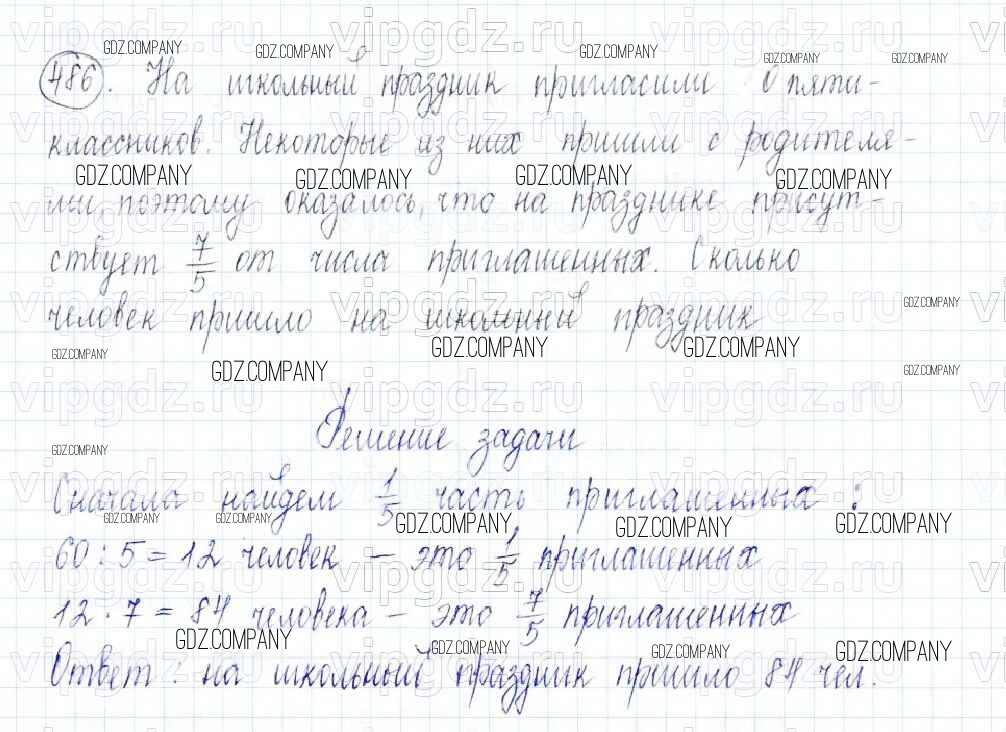 486. На школьный праздник пригласили 0 пяти-
классников. Некоторые из них пришли с родителя-
ми, поэтому оказалось, что на празднике присут-
ствует 7/5 от числа приглашенных. Сколько
человек пришло на школьный праздник
Решение задачи
Сначала найдем 1/5 часть приглашенных:
60 : 5 = 12 человек – это 1/5 приглашенных
12 · 7 = 84 человека – это 7/5 приглашенных
Ответ: на школьный праздник пришло 84 чел.
GDZ.COMPANY
vipgdz.ru